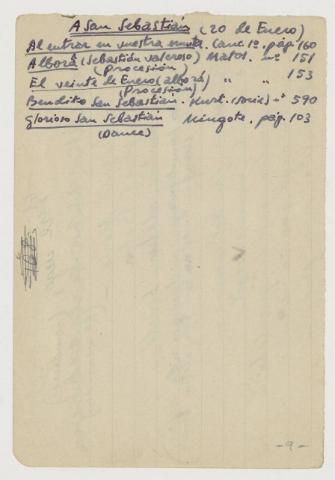 A San Sebastián (20 de Enero)
Al entrar en vuestra ermita. Canc. 1º. pág. 160
Alborá (Sebastián valeroso) Matol. nº 151
(Procesión)
El veinte de Enero (alborá) " " 153
(Procesión)
Bendito San Sebastián. Kurt. (Soria) nº 590
Glorioso San Sebastián Mingote. pág. 103
(Dance)
-9-